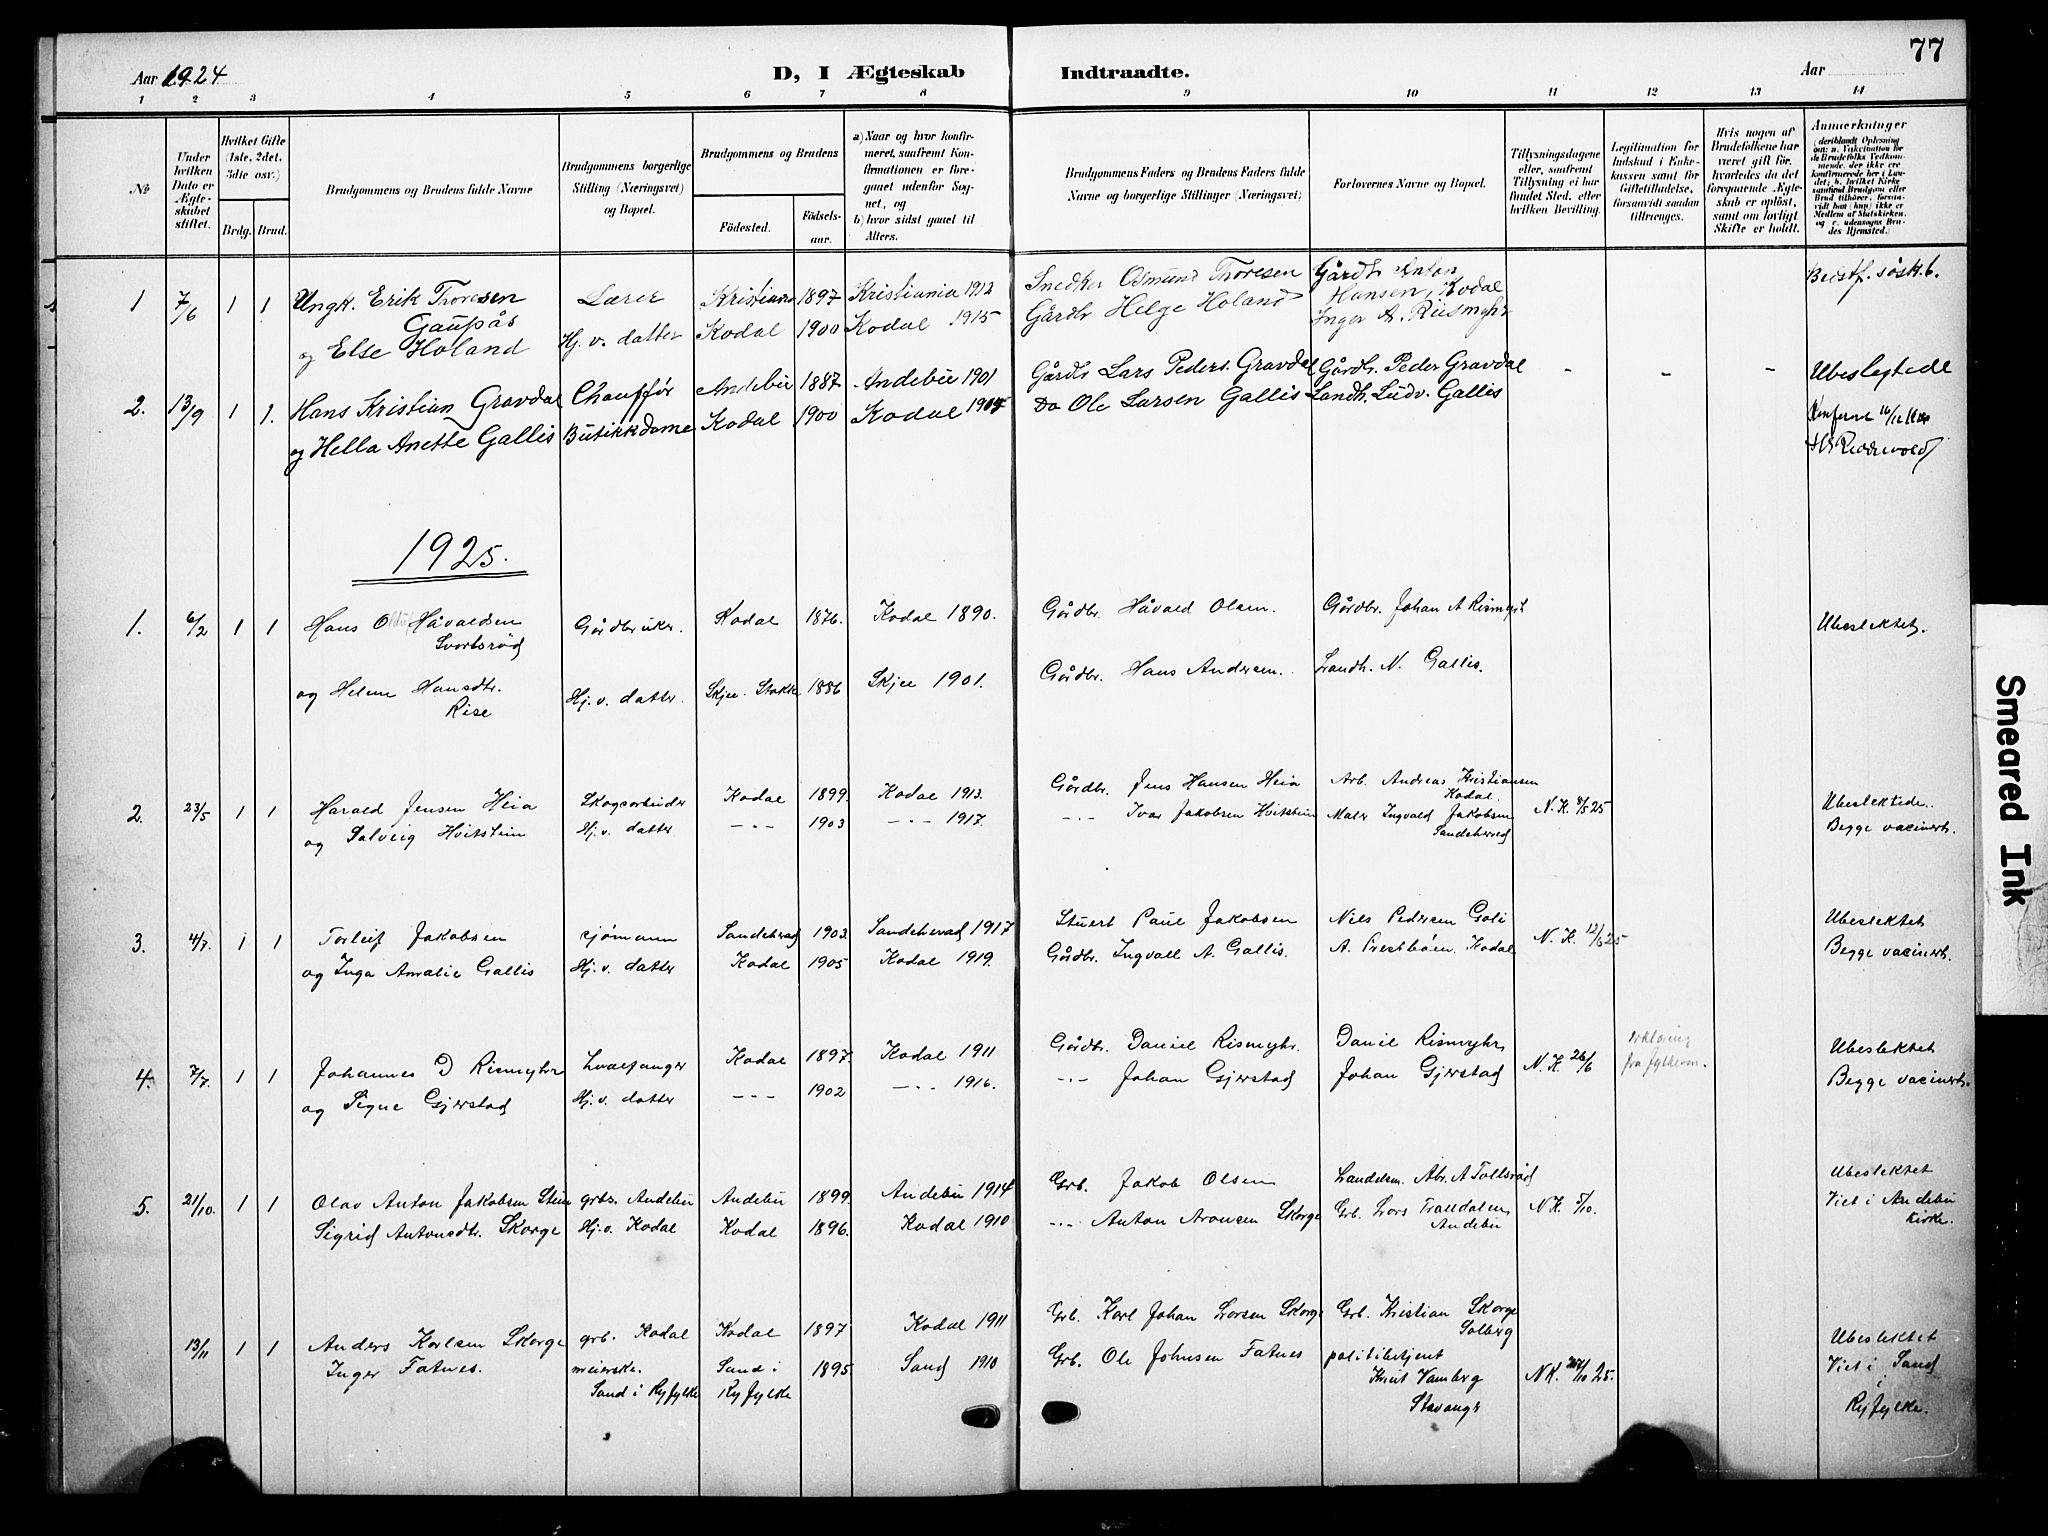 77
Aar 1924
D, I Ægteskab Indtraadte.
Aar
1 2 3 4 5 6 7 8 9 10 11 12 13 14
No
Under hvilken Dato er Ægteskabet stiftet.
Hvilket Gifte (1ste, 2det, 3die osv.)
Brdg. Brud.
Brudgommens og Brudens fulde Navne
Brudgommens borgerlige Stilling (Næringsvei) og Bopæl.
Brudgommens og Brudens
Fødested. Fødselsaar.
a) Naar og hvor konfirmeret, saafremt Konfirmationen er foregaaet udenfor Sognet, og
b) hvor sidst gaaet til Alters.
Brudgommens Faders og Brudens Faders fulde Navne og borgerlige Stillinger (Næringsvei)
Forlovernes Navne og Bopæl.
Tillysningsdagene eller, saafremt Tillysning ei har fundet Sted, efter hvilken Bevilling.
Legitimation for Indskud i Enkekassen samt for Giftetilladelse, forsaavidt saadan tiltrænges.
Hvis nogen af Brudefolkene har været gift før, hvorledes da det foregaaende Ægteskab er opløst, samt om lovligt Skifte er holdt.
Anmerkninger
(deriblandt Oplysning om: a. Vakcination for de Brudefolks Vedkommende, der ikke ere konfirmerede her i Landet; b. hvilket Kirkesamfund Brudgom eller Brud tilhører, forsaavidt han (hun) ikke er Medlem af Statskirken, og c. udensogns Brudes Hjemsted.)
1 7/6 1 1 Ungk. Erik Thoresen Lærer Kristiania 1897 Kristiania 1912 Snedker Osmund Thoresen Gårdb. Anton Beslf. søsk.b.
Gaupås Hansen, Kodal
og Else Holand Hj. v. datter Kodal 1900 Kodal 1915 Gårdbr Helge Holand Inger A. Riismyhr
2. 13/9 1 1. Hans Kristian Gravdal Chauffør Andebu 1887 Andebu 1901 Gårdb Lars Peders. Gravdal Gårdb. Peder Gravdal - - - Ubeslegtede
og Hella Anette Gallis Butikkdame Kodal 1900 Kodal 1914 Do Ole Larsen Gallis Landh. Ludv. Gallis
1925.
1. 6/2 1 1 Hans Håvaldsen Gårdbruker. Kodal 1876. Kodal 1890. Gårdbr. Håvald Olsen. Gårdbr. Johan A Rismyhr Ubeslektet.
Svartsrød
og Helene Hansdtr. Hj. v. datter. Skjee. Stokke 1886 Skjee 1901. Gårdbr. Hans Andersen. Landh. N. Gallis.
Rise
2. 23/5 1 1 Harald Jensen Heia Skogsarbeider Kodal 1899. Kodal 1913. Gårdbr. Jens Hansen Heia Arb. Andreas Kristiansen Kodal. N. K. 8/5 25 Ubeslektede.
og Solveig Hvitstein Hj. v. datter -"- 1903 -"- 1917. -"- Ivar Jakobsen Hvitstein Maler Ingvald Jakobsen Sandeherred Begge vacinert.
3. 4/7. 1 1 Torleif Jakobsen sjømann Sandeherad 1903. Sandeherad 1917 Stuert Paul Jakobsen Niels Pedersen Goli N. K. 12/6 25 Ubeslektet
og Inga Amalie Gallis Hj. v. datter Kodal 1905 Kodal 1919. Gårdbr. Ingvall A. Gallis. A. Prestbøen. Kodal Begge vacinert.
4. 7/7. 1 1 Johannes D Rismyhr hvalfanger Kodal 1897. Kodal 1911 Gårdbr. Daniel Rismyhr. Daniel Rismyhr N. K. 26/6 erklæring fra fylkesm. Ubeslektet
og Signe Gjerstad Hj. v. datter -"- 1902 -"- 1916. -"- Johan Gjerstad Johan Gjerstad Begge vacinert.
5. 21/10. 1 1 Olav Anton Jakobsen Stein grbr. Andebu Andebu 1899. Andebu 1914 Grb. Jakob Olsen Landelm. Abr. A Tolsrød N K. 5/10. Ubeslektet
Sigrid Antonsdtr. Skorge Hj. v. Kodal Kodal 1896. Kodal 1910 -"- Anton Aronsen Skorge Grb. Lars Trandalen Andebu Viet i Andebu Kirke.
13/11 1 1 Anders Karlsen Skorge grb. Kodal Kodal 1897 Kodal 1911 Grb. Karl Johan Larsen Skorge Grb. Kristian Skorge Solberg Ubeslektet
Inger Fatnes. meierske. Sand i Ryfylke Sand i Ryfylke 1895. Sand 1910 Grb. Ole Johnsen Fatnes politibetjent Knut Vamberg Stavanger NK. 24/10 25. Viet i Sand i Ryfylke.
Smeared Ink